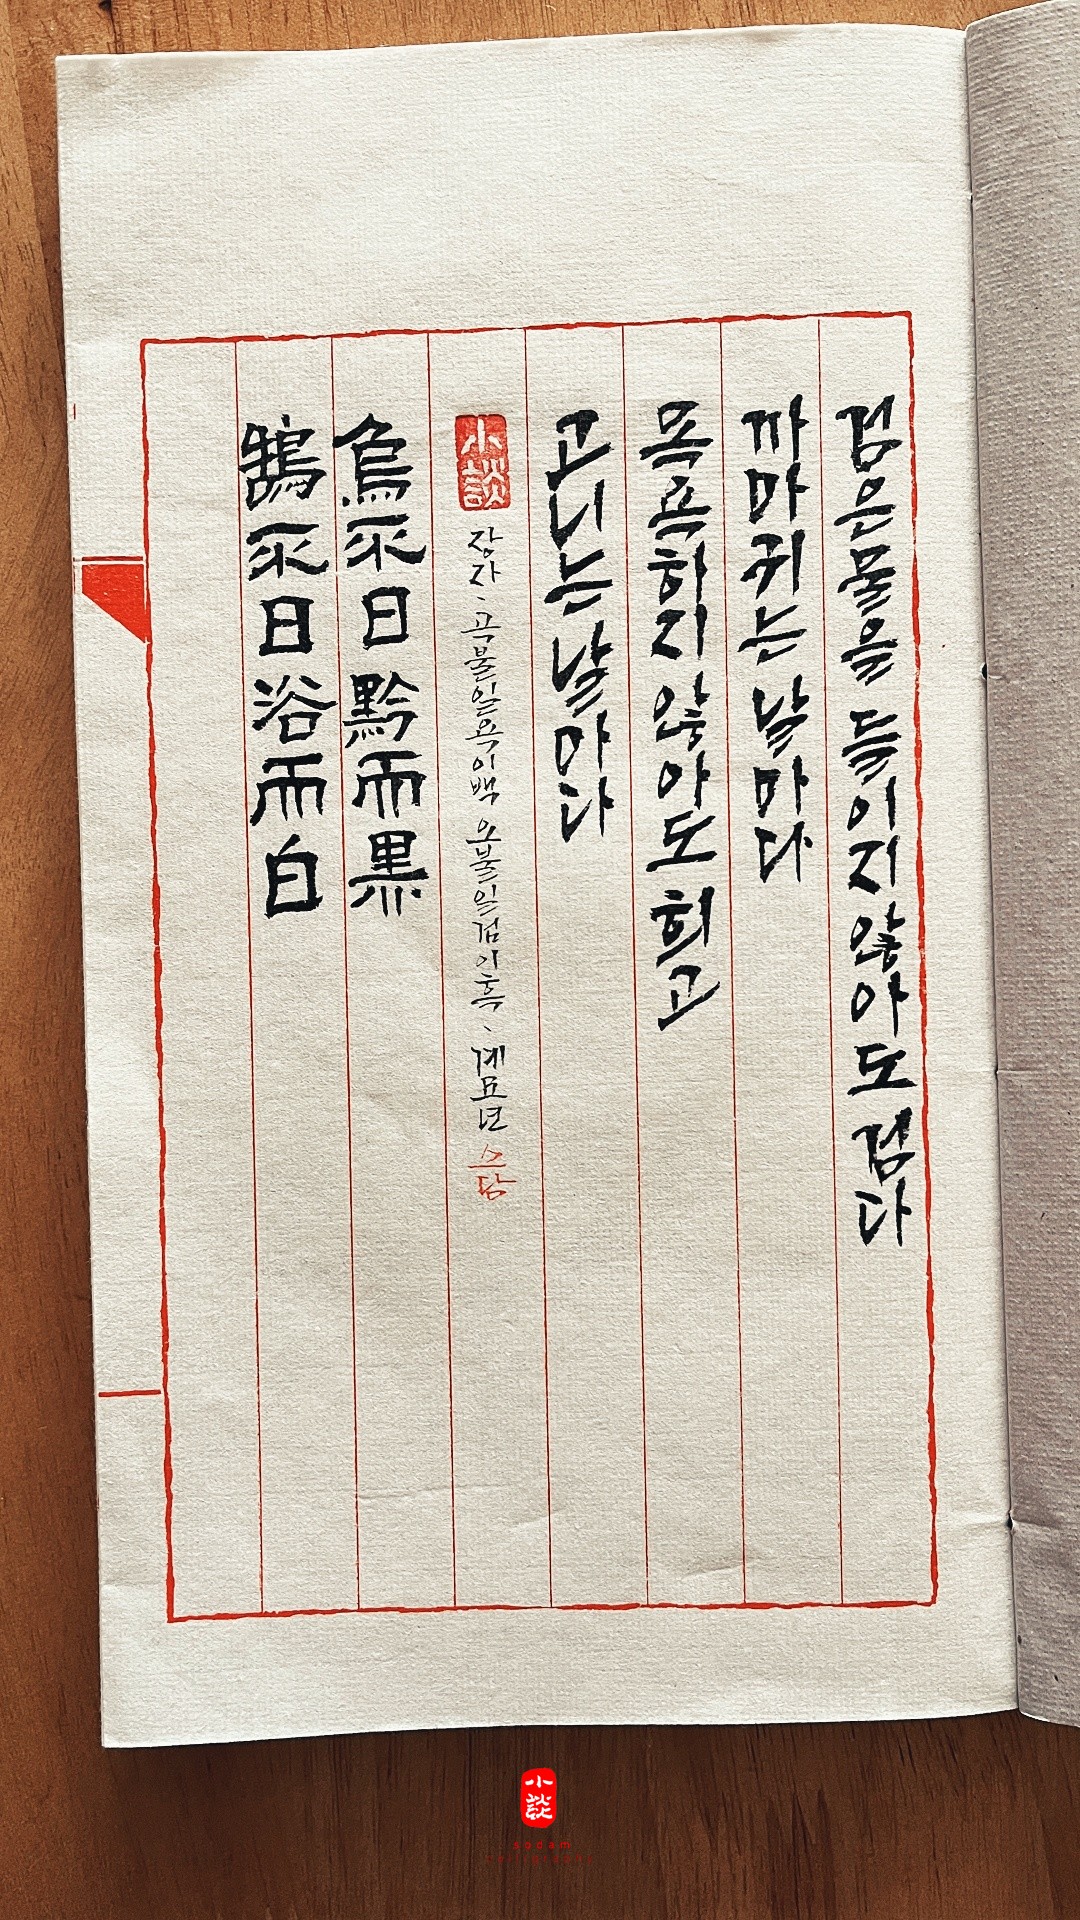 鵠不日浴而白
烏不日黔而黑
小談
장자、곡불일욕이백 오불일검이흑、계묘년 소담
고니는 날마다
목욕하지 않아도 희고
까마귀는 날마다
검은물을 들이지 않아도 검다
小談
sodam